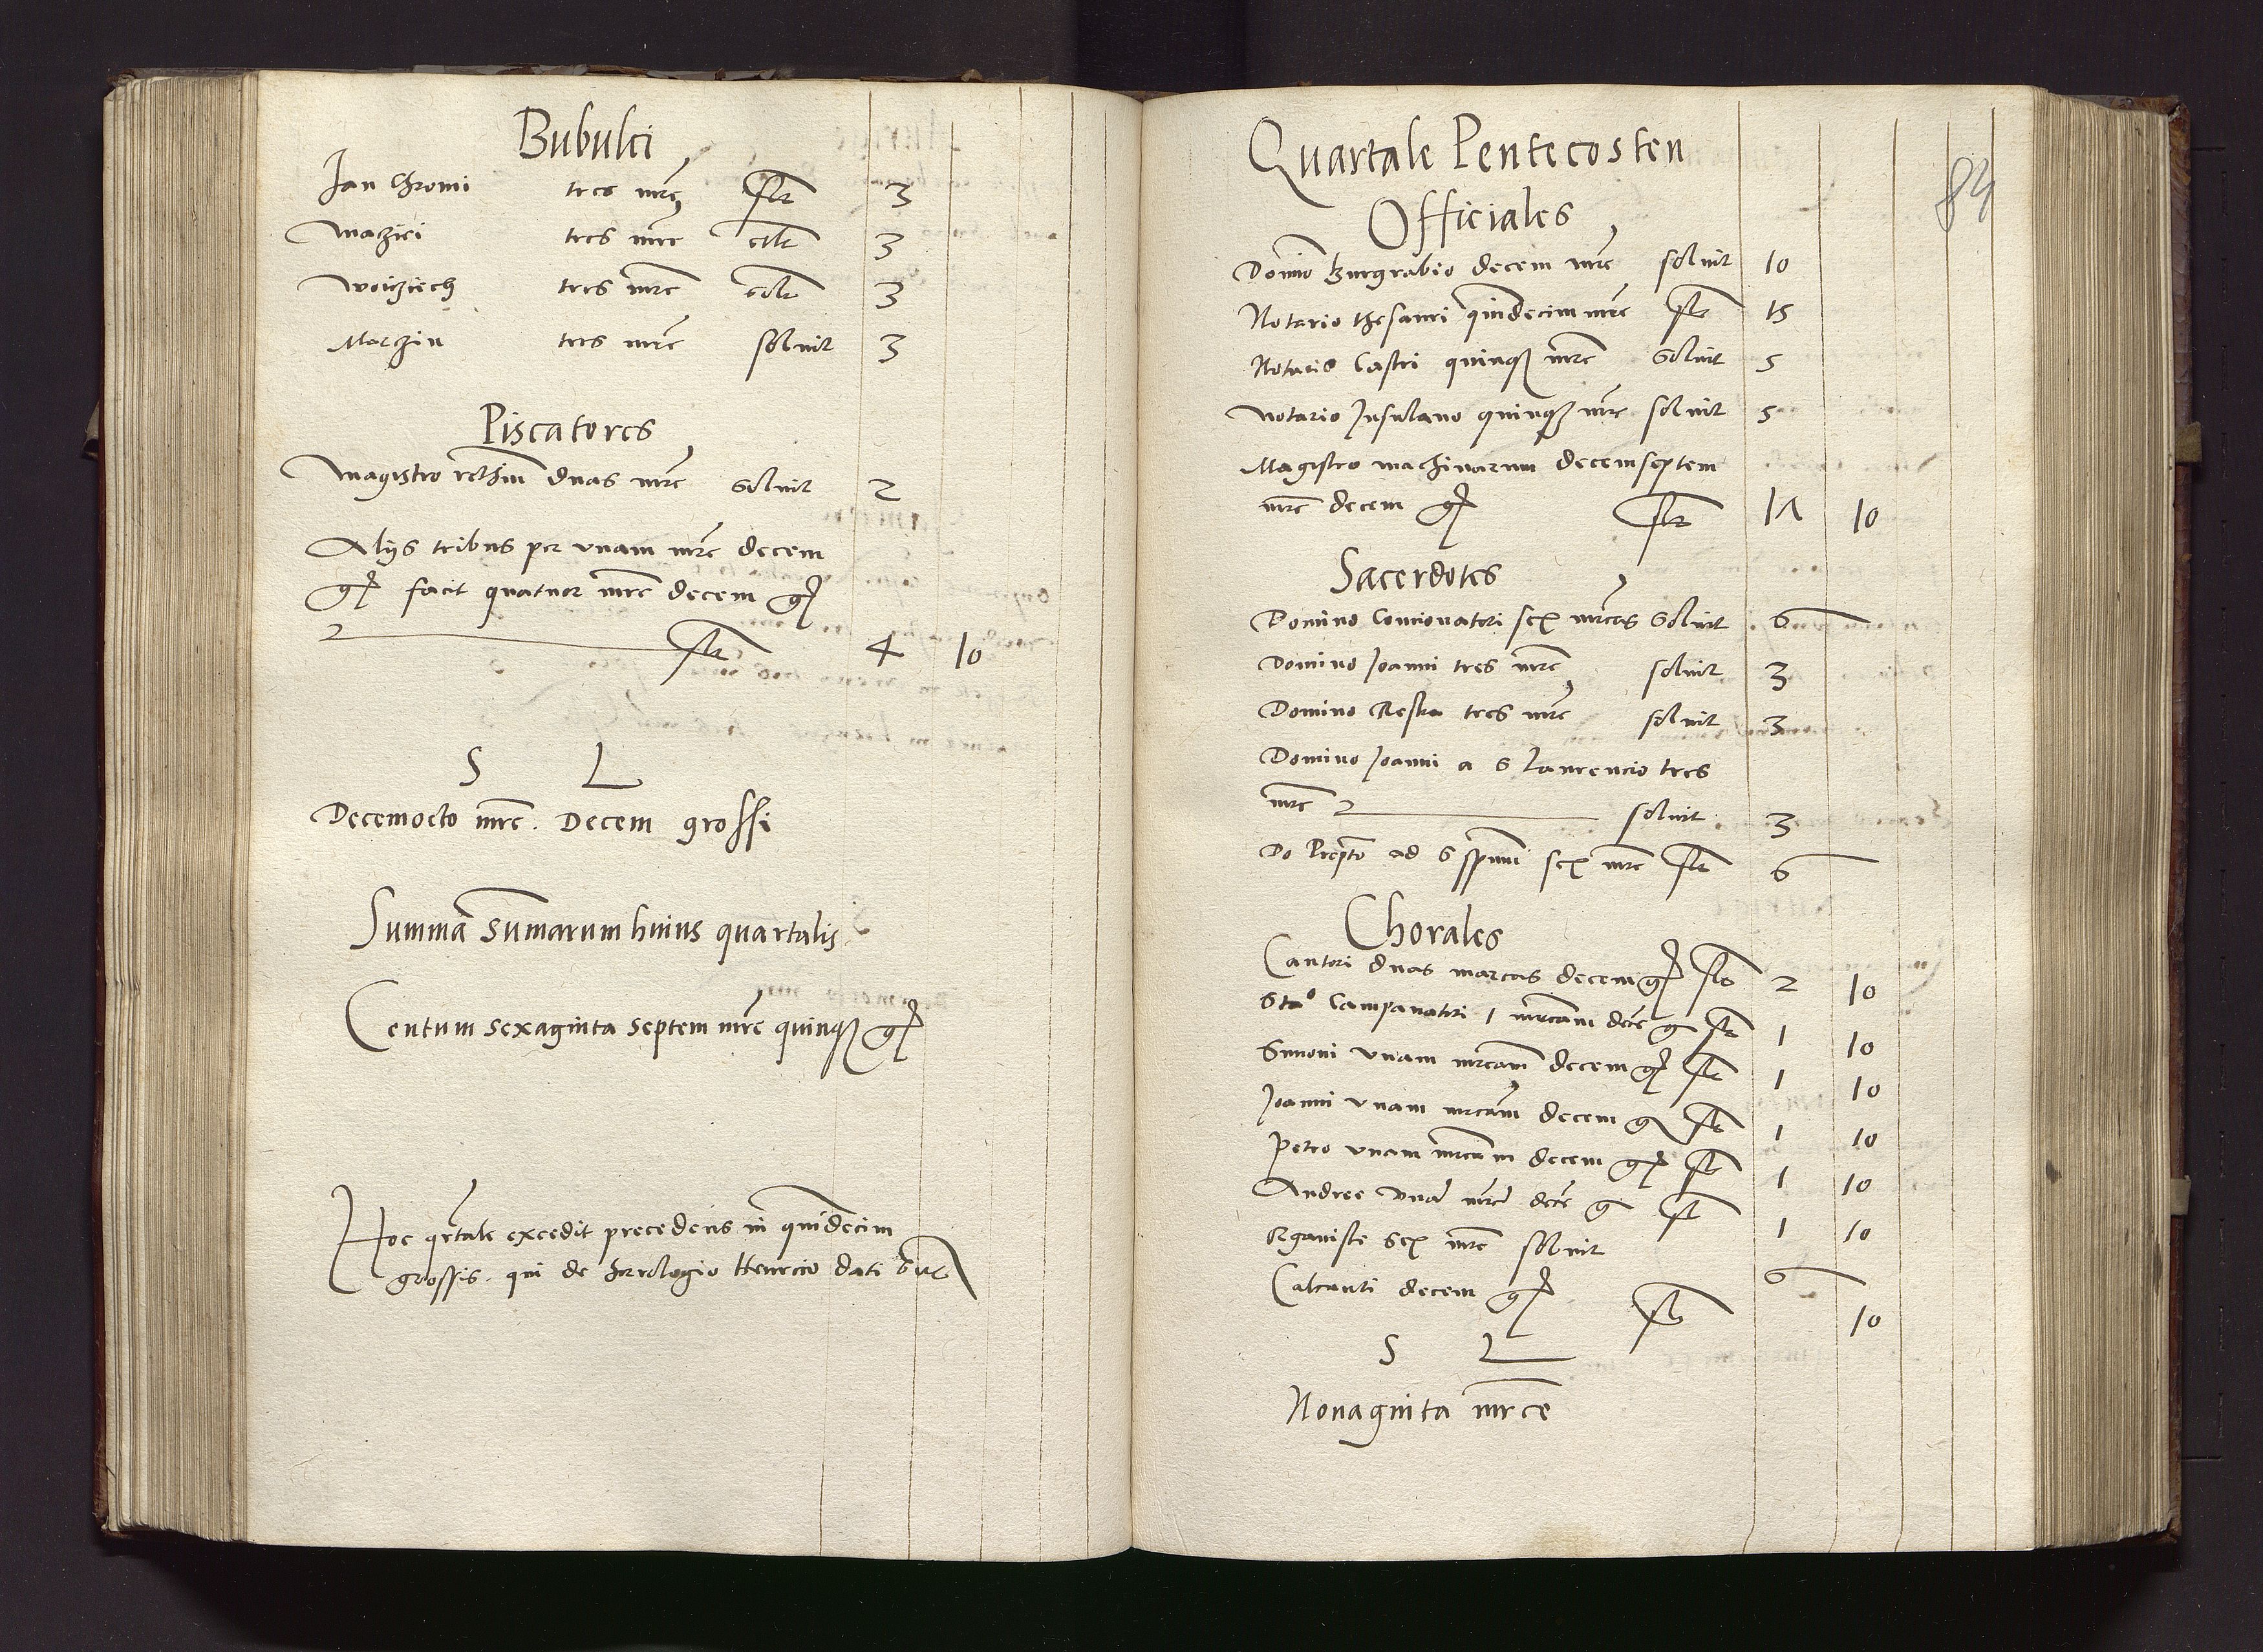 Bubulci
Jan Chromi tres mrc slt 3
Macziei tres mrc solt 3
Woicziech tres mrc solt 3
Marczin tres mrc soluit 3
Piscatores
Magistro rethium duas mrc soluit 2
Alijs tribus per vnam mrc decem
gr facit quatuor mrc decem gr
slt 4 10
S L
Decemocto mrc. Decem grossi
Summa Sumarum huius quartalis
Centum sexaginta septem mrc quinq gr
Hoc qrtale excedit precedens in quindecim
grossis. qui de horologio Henrico dati sut
Quartale Pentecosten
84
Officiales
Domino Burgrabio decem mrc soluit 10
Notario thesauri quindecim mrc slt 15
Notario Castri quinq mrc soluit 5
Notario Insulano quinq mrc soluit 5
Magistro machinarum decemseptem
mrc decem gr slt 17 10
Sacerdotes
Domino Concionatori sex mrcas soluit 6
Domino Joanni tres mrc soluit 3
Domino Reska tres mrc soluit 3
Domino Joanni a S Laurencio tres
mrc soluit 3
Do Prepto ad S spum sex mrc slt 6
Chorales
Cantori duas marcas decem gr slt 2 10
Sta⁰ Campanatori 1 mrcam dece g slt 1 10
Simoni vnam mrcam decem gr slt 1 10
Joanni vnam mrcam decem g slt 1 10
Petro vnam mrcam decem gr slt 1 10
Andree vna mrca dece g slt 1 10
Organiste sex mrc soluit 6
Calcanti decem gr slt 10
S L
Nonaginta mrce